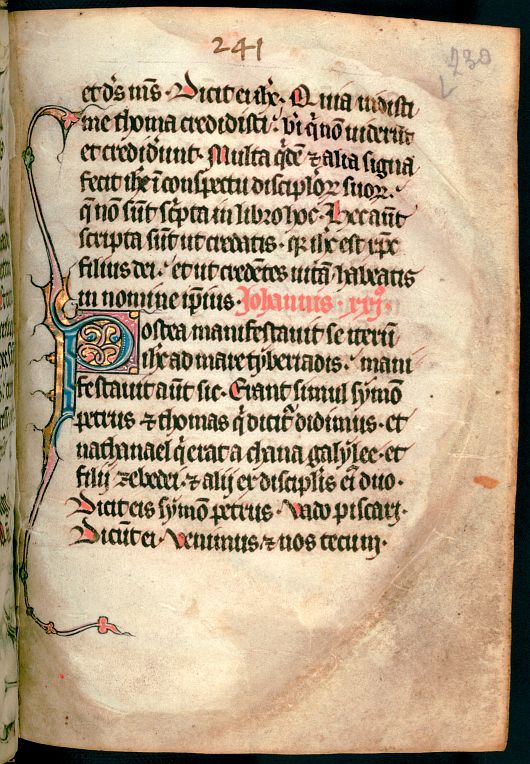 241
230
et ds ms · Dicit ei ihc · Quia uidisti
me thoma credidisti · bi q̄ nō uiderūt
et credidūnt · Multa qdē ⁊ alia signa
fecit ihc ī conspectu disciplōꝝ suoꝝ ·
q̄ nō sūt scpta in libro hoc · hec aūt
scripta sūt ut credatis · qꝛ ihc est xpc
filius dei · et ut credētes uitā habeatis
in nomine ipius · Johannis · xxj ·
Postea manifestauit se iterū
ihc ad mare tyberiadis · mani
festauit aūt sic · Erant simul symō
petrus ⁊ thomas q̇ dicit̄ didimus · et
nathanael q̇ erat a chana galylee · et
filij zebedei · ⁊ alij ex disciplis eī duo ·
Dicit eis symō petrus · Vado piscari ·
Dicūt ei · Venimus ⁊ nos tecum ·